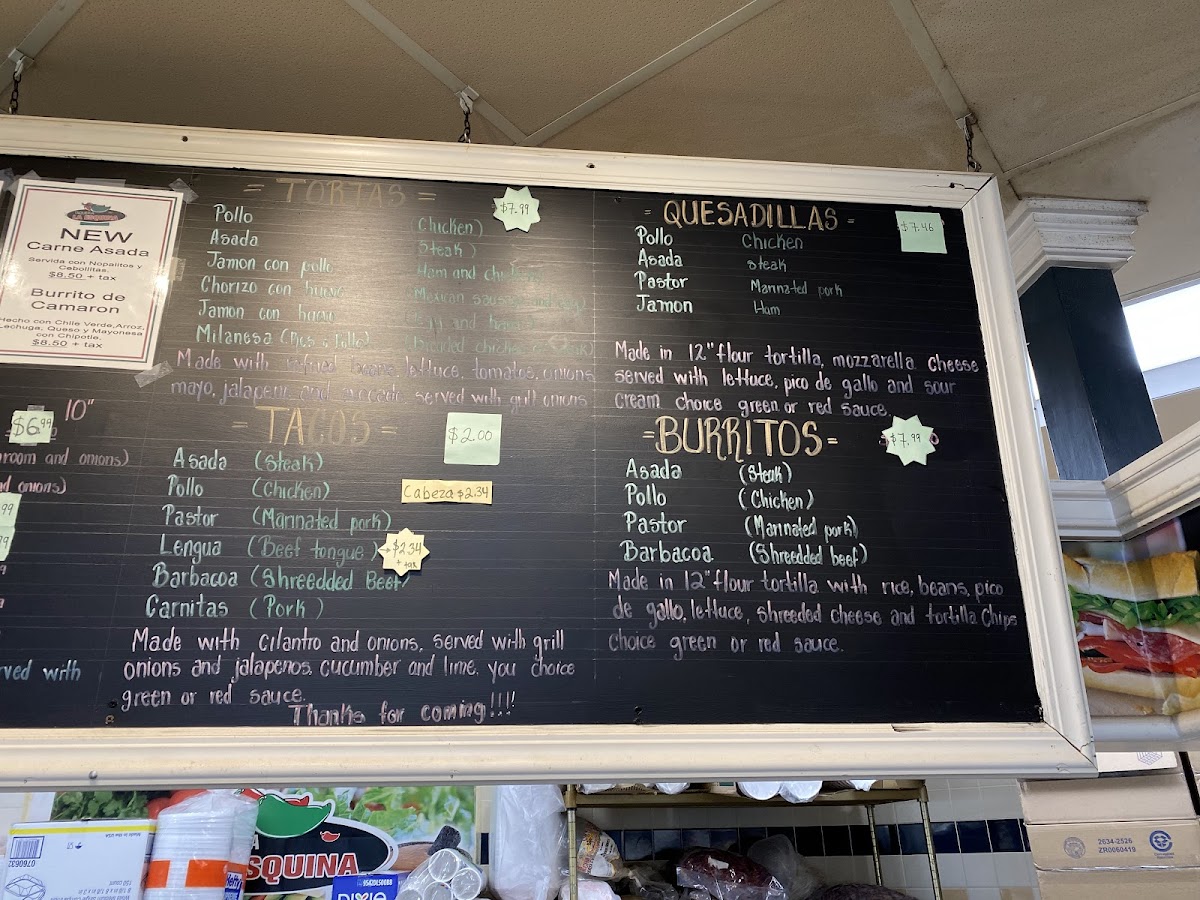 LA ESQUINA
NEW
Carne Asada
Servida con Nopalitos y
Cebollitas.
$8.50 + tax
Burrito de
Camaron
Hecho con Chile Verde,Arroz,
Lechuga, Queso y Mayonesa
con Chipotle.
$8.50 + tax
10"
$6.99
room and onions)
d onions)
99
99
rved with
= TORTAS =
$7.99
Pollo (Chicken)
Asada (Steak)
Jamon con pollo Ham and
Chorizo con huevo (Mexican
Jamon con huevo
Milanesa
Made with refried beans, lettuce, tomatoes, onions
mayo, jalapeno and avocado, served with grill onions
= TACOS =
$2.00
Asada (Steak)
Pollo (Chicken)
Cabeza $2.34
Pastor (Marinated pork)
Lengua (Beef tongue)
$2.34
+ tax
Barbacoa (Shreedded Beef
Carnitas (Pork)
Made with Cilantro and onions, served with grill
onions and jalapenos, cucumber and lime, you choice
green or red sauce.
Thanks for coming!!!!
= QUESADILLAS =
$7.46
Pollo Chicken
Asada steak
Pastor Marinated pork
Jamon Ham
Made in 12" flour tortilla, mozzarella cheese
served with lettuce, pico de gallo and sour
cream choice green or red sauce.
=BURRITOS=
$7.99
Asada (Steak)
Pollo (Chicken)
Pastor (Marinated pork)
Barbacoa (Shreedded beef)
Made in 12" flour tortilla with rice, beans, pico
de gallo, lettuce, shreeded cheese and tortilla Chips
Choice green or red sauce.
A
ESQUINA
DIXIE
2634-2526
ZR0060419